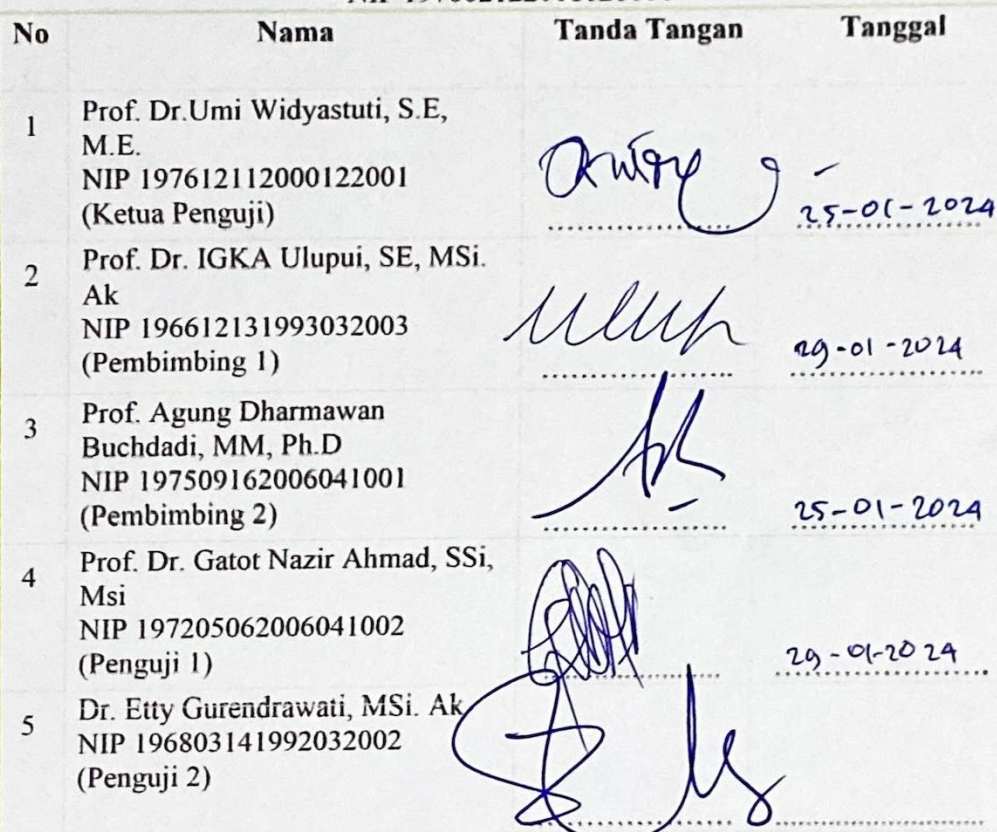 No Nama Tanda Tangan Tanggal
1 Prof. Dr.Umi Widyastuti, S.E,
M.E.
NIP 197612112000122001
(Ketua Penguji) 25-01-2024
2 Prof. Dr. IGKA Ulupui, SE, MSi.
Ak
NIP 196612131993032003
(Pembimbing 1) 29-01-2024
3 Prof. Agung Dharmawan
Buchdadi, MM, Ph.D
NIP 197509162006041001
(Pembimbing 2) 25-01-2024
4 Prof. Dr. Gatot Nazir Ahmad, SSi,
Msi
NIP 197205062006041002
(Penguji 1) 29-01-2024
5 Dr. Etty Gurendrawati, MSi. Ak
NIP 196803141992032002
(Penguji 2)